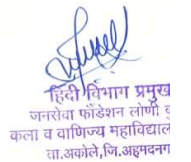 हिंदी विभाग प्रमुख
जनसेवा फौंडेशन लोणी बु
कला व वाणिज्य महाविद्याल
ता.अकोले,जि.अहमदनग